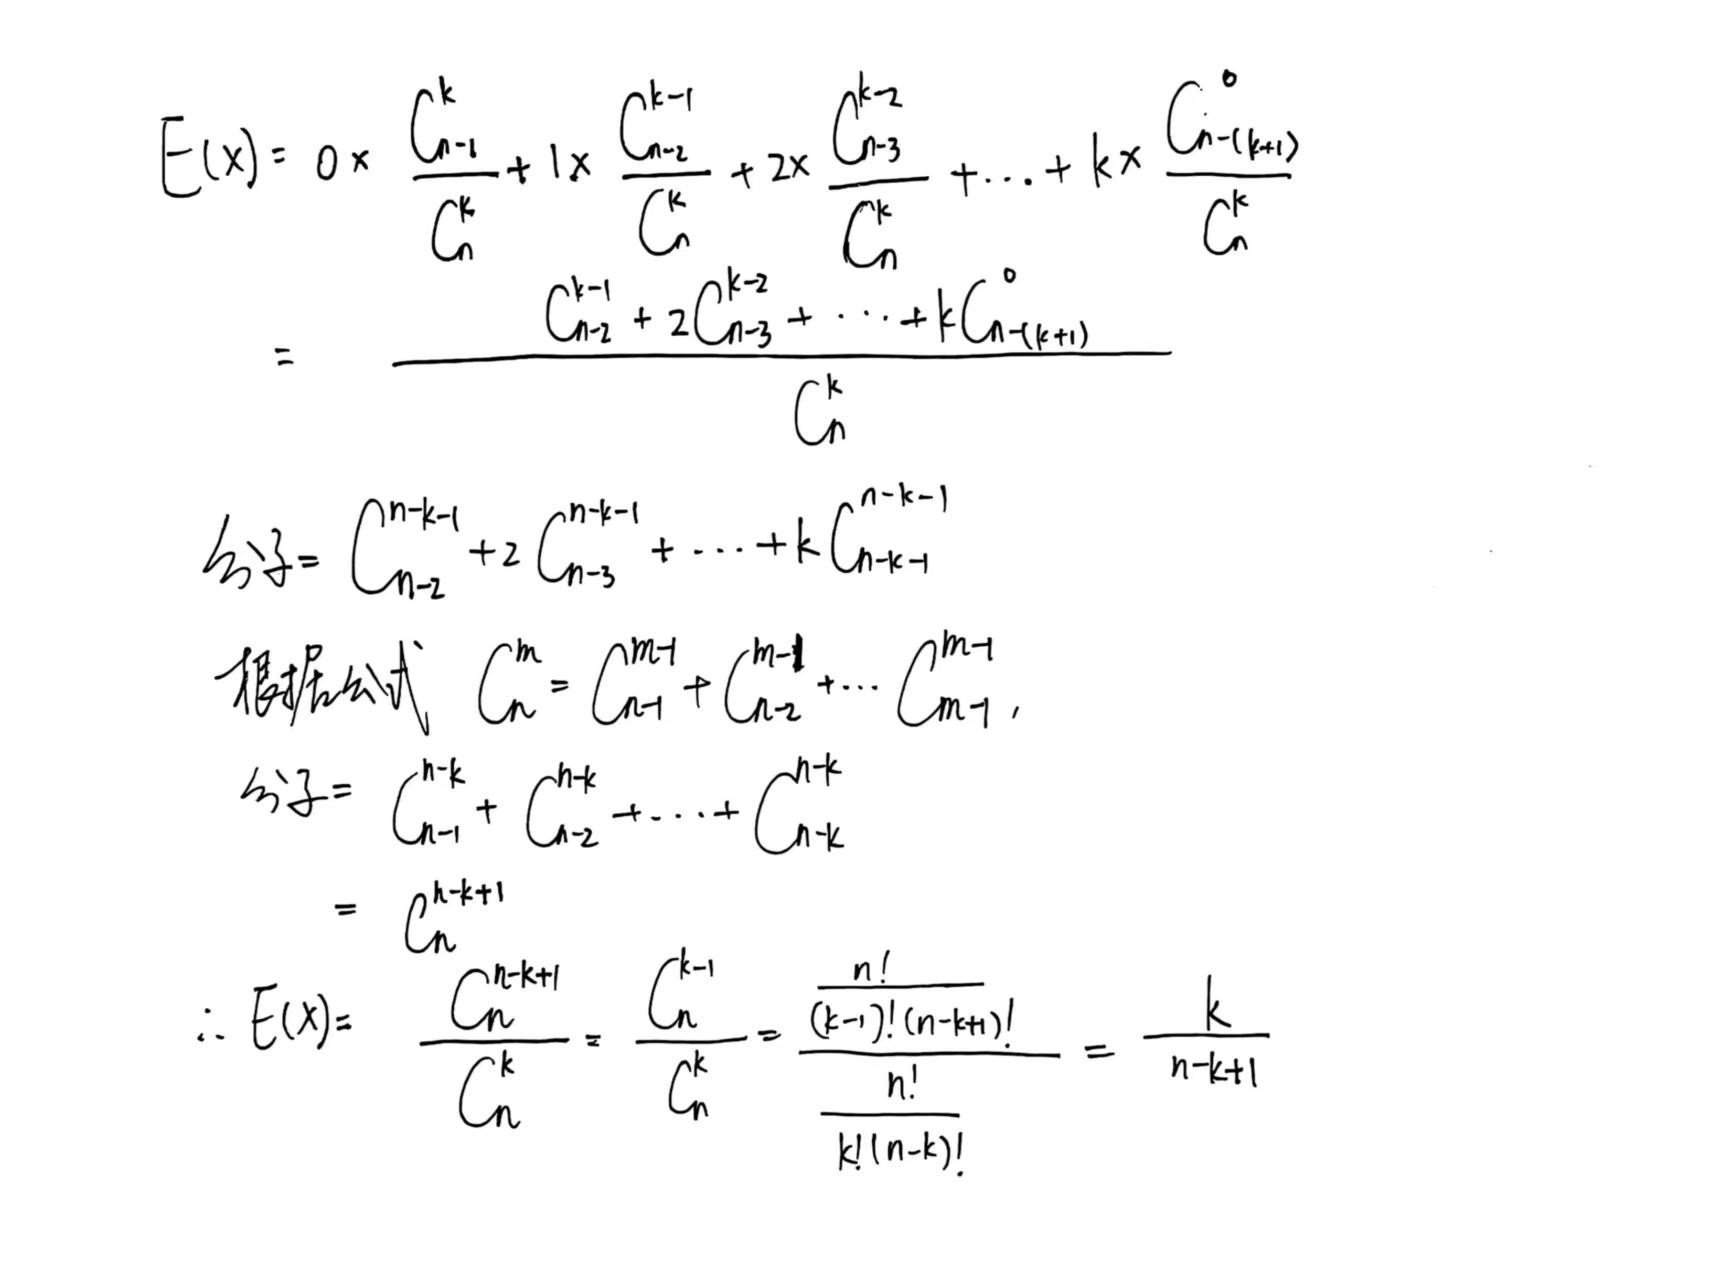 E(X) = 0 × \frac{C_{n-1}^{k}}{C_n^k} + 1 × \frac{C_{n-2}^{k-1}}{C_n^k} + 2 × \frac{C_{n-3}^{k-2}}{C_n^k} + ... + k × \frac{C_{n-(k+1)}^{0}}{C_n^k}
= \frac{C_{n-2}^{k-1} + 2C_{n-3}^{k-2} + ... + kC_{n-(k+1)}^{0}}{C_n^k}
分子 = C_{n-2}^{n-k-1} + 2C_{n-3}^{n-k-1} + ... + kC_{n-k-1}^{n-k-1}
根据公式 C_n^m = C_{n-1}^{m-1} + C_{n-2}^{m-1} + ... C_{m-1}^{m-1},
分子 = C_{n-1}^{n-k} + C_{n-2}^{n-k} + ... + C_{n-k}^{n-k}
= C_n^{n-k+1}
∴ E(X) = \frac{C_n^{n-k+1}}{C_n^k} = \frac{C_n^{k-1}}{C_n^k} = \frac{\frac{n!}{(k-1)!(n-k+1)!}}{\frac{n!}{k!(n-k)!}} = \frac{k}{n-k+1}